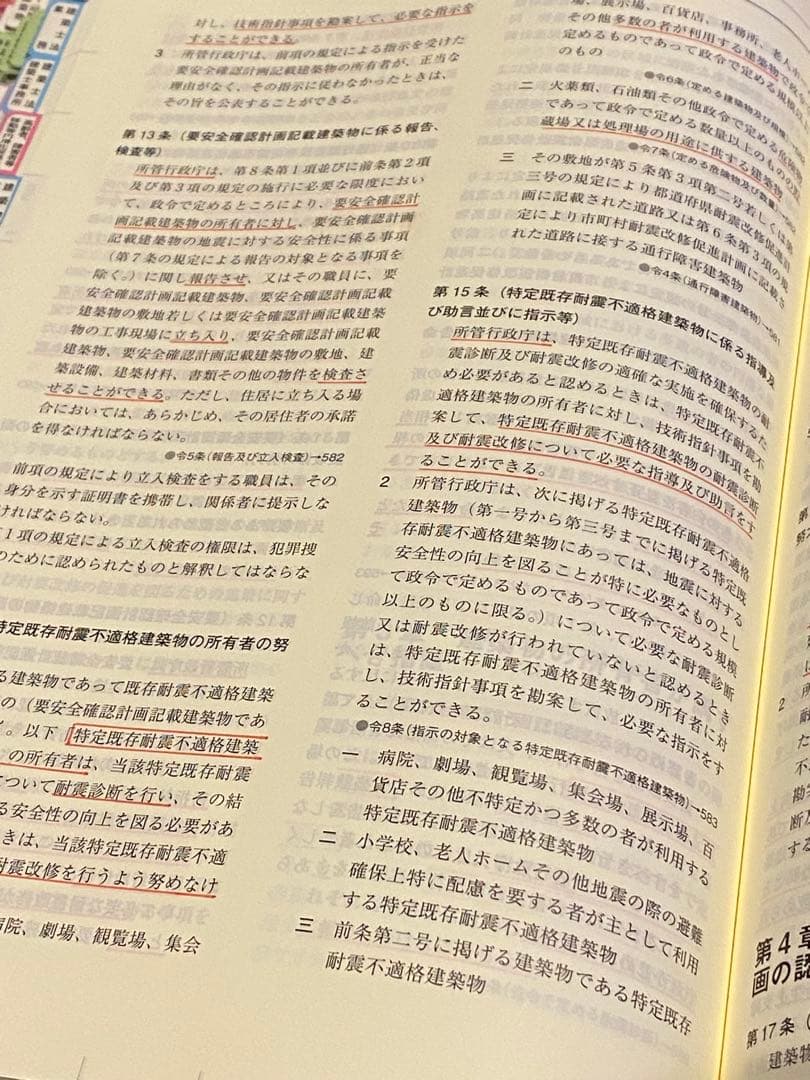 対し、技術指針事項を勘案して、必要な指示を
することができる。
3 所管行政庁は、前項の規定による指示を受けた
要安全確認計画記載建築物の所有者が、正当な
理由がなく、その指示に従わなかったときは、
その旨を公表することができる。
第13条（要安全確認計画記載建築物に係る報告、
検査等）
所管行政庁は、第8条第1項並びに前条第2項
及び第3項の規定の施行に必要な限度におい
て、政令で定めるところにより、要安全確認計
画記載建築物の所有者に対し、要安全確認計画
記載建築物の地震に対する安全性に係る事項
（第7条の規定による報告の対象となる事項を
除く。）に関し報告させ、又はその職員に、要
安全確認計画記載建築物、要安全確認計画記載
建築物の敷地若しくは要安全確認計画記載建築
物の工事現場に立ち入り、要安全確認計画記載
建築物、要安全確認計画記載建築物の敷地、建
築設備、建築材料、書類その他の物件を検査さ
せることができる。ただし、住居に立ち入る場
合においては、あらかじめ、その居住者の承諾
を得なければならない。
●令5条（報告及び立入検査）→582
前項の規定により立入検査をする職員は、その
身分を示す証明書を携帯し、関係者に提示しな
ければならない。
1項の規定による立入検査の権限は、犯罪捜
のために認められたものと解釈してはならな
特定既存耐震不適格建築物の所有者の努
る建築物であって既存耐震不適格建築
の（要安全確認計画記載建築物であ
。以下「特定既存耐震不適格建築
の所有者は、当該特定既存耐震
について耐震診断を行い、その結
る安全性の向上を図る必要があ
きは、当該特定既存耐震不適
耐震改修を行うよう努めなけ
病院、劇場、観覧場、集会
場、展示場、百貨店、事務所、老人ホ
その他多数の者が利用する建築物で政
定めるものであって政令で定める規模
のもの
●令6条（定める建築物及び規模）
二 火薬類、石油類その他政令で定める危険物
であって政令で定める数量以上のものの貯
蔵場又は処理場の用途に供する建築物
●令7条（定める危険物及び数量）
三 その敷地が第5条第3項第二号若しくは第
三号の規定により都道府県耐震改修促進計
画に記載された道路又は第6条第3項の規
定により市町村耐震改修促進計画に記載さ
れた道路に接する通行障害建築物
●令4条（通行障害建築物）→581
第15条（特定既存耐震不適格建築物に係る指導及
び助言並びに指示等）
所管行政庁は、特定既存耐震不適格建築物の耐
震診断及び耐震改修の適確な実施を確保するた
め必要があると認めるときは、特定既存耐震不
適格建築物の所有者に対し、技術指針事項を勘
案して、特定既存耐震不適格建築物の耐震診断
及び耐震改修について必要な指導及び助言をす
ることができる。
2 所管行政庁は、次に掲げる特定既存耐震不適格
建築物（第一号から第三号までに掲げる特定既
存耐震不適格建築物にあっては、地震に対する
安全性の向上を図ることが特に必要なものとし
て政令で定めるものであって政令で定める規模
以上のものに限る。）について必要な耐震診断
又は耐震改修が行われていないと認めるとき
は、特定既存耐震不適格建築物の所有者に対
し、技術指針事項を勘案して、必要な指示をす
ることができる。
●令8条（指示の対象となる特定既存耐震不適格建築物）→583
一 病院、劇場、観覧場、集会場、展示場、百
貨店その他不特定かつ多数の者が利用する
特定既存耐震不適格建築物
二 小学校、老人ホームその他地震の際の避難
確保上特に配慮を要する者が主として利用
する特定既存耐震不適格建築物
三 前条第二号に掲げる建築物である特定既存
耐震不適格建築物
第4章
画の認
第17条（
建築物